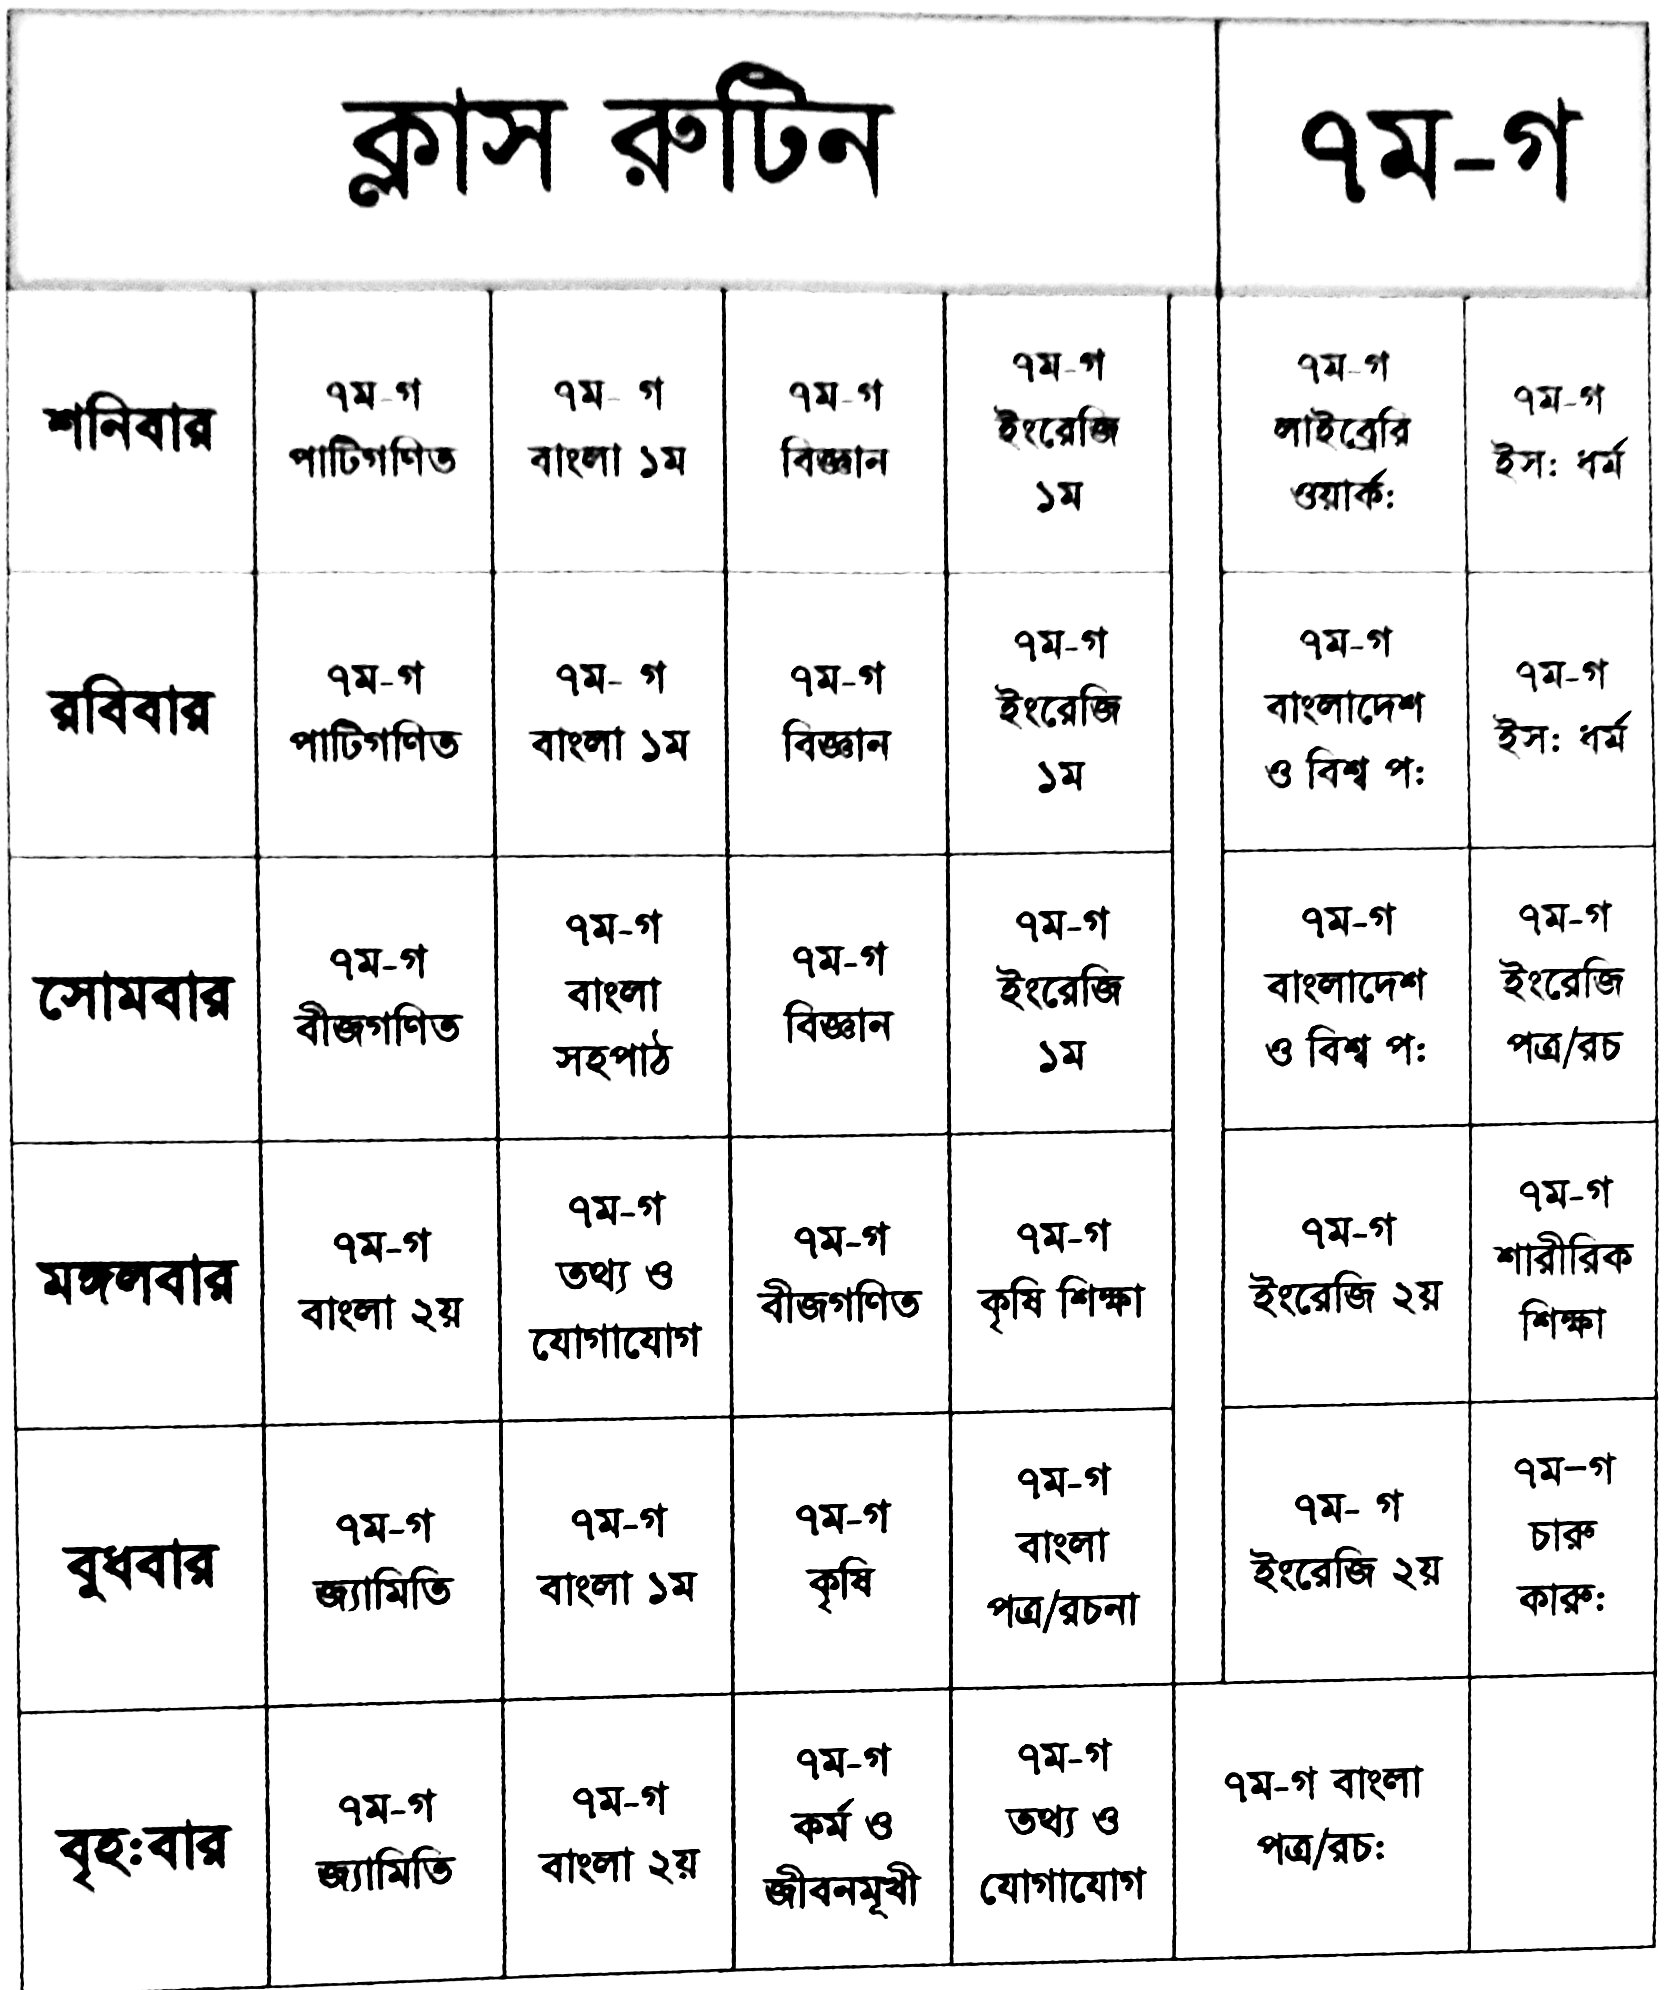 ক্লাস রুটিন
৭ম-গ
শনিবার
৭ম-গ
পাটিগণিত
৭ম- গ
বাংলা ১ম
৭ম-গ
বিজ্ঞান
৭ম-গ
ইংরেজি
১ম
৭ম-গ
লাইব্রেরি
ওয়ার্ক:
৭ম-গ
ইস: ধর্ম
রবিবার
৭ম-গ
পাটিগণিত
৭ম- গ
বাংলা ১ম
৭ম-গ
বিজ্ঞান
৭ম-গ
ইংরেজি
১ম
৭ম-গ
বাংলাদেশ
ও বিশ্ব প:
৭ম-গ
ইস: ধর্ম
সোমবার
৭ম-গ
বীজগণিত
৭ম-গ
বাংলা
সহপাঠ
৭ম-গ
বিজ্ঞান
৭ম-গ
ইংরেজি
১ম
৭ম-গ
বাংলাদেশ
ও বিশ্ব প:
৭ম-গ
ইংরেজি
পত্র/রচ
মঙ্গলবার
৭ম-গ
বাংলা ২য়
৭ম-গ
তথ্য ও
যোগাযোগ
৭ম-গ
বীজগণিত
৭ম-গ
কৃষি শিক্ষা
৭ম-গ
ইংরেজি ২য়
৭ম-গ
শারীরিক
শিক্ষা
বুধবার
৭ম-গ
জ্যামিতি
৭ম-গ
বাংলা ১ম
৭ম-গ
কৃষি
৭ম-গ
বাংলা
পত্র/রচনা
৭ম- গ
ইংরেজি ২য়
৭ম–গ
চারু
কারু:
বৃহ:বার
৭ম-গ
জ্যামিতি
৭ম-গ
বাংলা ২য়
৭ম-গ
কর্ম ও
জীবনমূখী
৭ম-গ
তথ্য ও
যোগাযোগ
৭ম-গ বাংলা
পত্র/রচ: